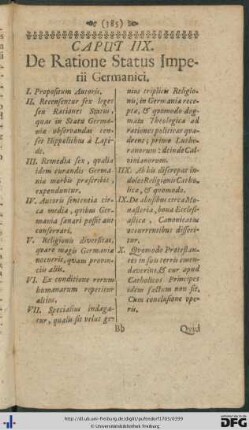 (185)
CAPUT IIX.
De Ratione Status Impe-
rii Germanici.
I. Propositum Autoris.
II. Recensentur sex leges
seu Rationes Status,
quas in Statu Germa-
nia observandas cen-
set Hippolithus à Lapi-
de.
III. Remedia sex, qualia
idem curandis Germa-
nia morbis præscribit,
expenduntur.
IV. Autoris sententia cir-
ca media, quibus Ger-
mania sanari possit aut
conservari.
V. Religionis diversitas,
quare magis Germania
nocuerit, quam provin-
ciis aliis.
VI. Ex conditione rerum
humanarum repetitur
altius.
VII. Specialius indaga-
tur, qualis sit velut ge-
nius triplicis Religio-
nis, in Germania recep-
ta, & quomodo dog-
mata Theologica ad
rationes politicas qua-
drent; primo Luthe-
ranorum: deinde Cal-
vinianorum.
IIX. Ab his discrepat in-
doles Religionis Catho-
lica, & quomodo.
IX. De abusibus circa Mo-
nasteria, bona Ecclesi-
astica, Canonicatus
occurrentibus disseri-
tur.
X. Quomodo Protestan-
tes in suis terris emen-
daverint, & cur apud
Catholicos Principes
idem factum non sit,
Cum conclusione ope-
ris.
Bb
Quid
© Universitätsbibliothek Freiburg
DFG